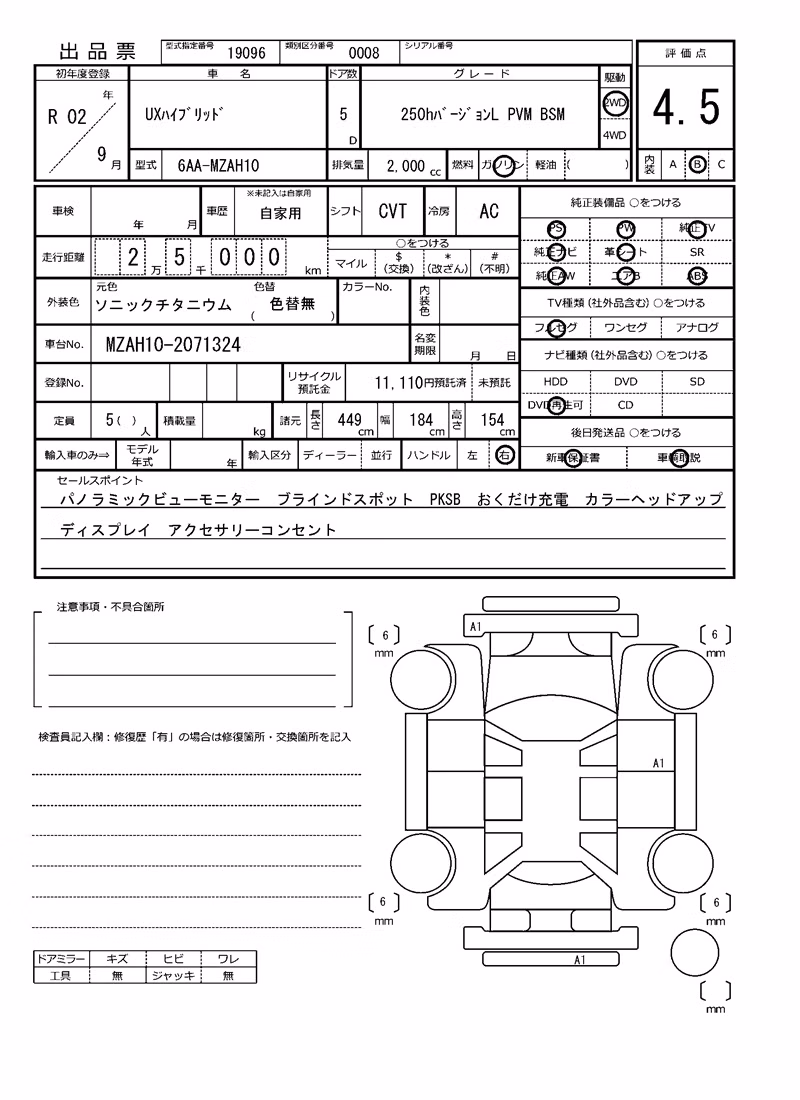 出品票 型式指定番号 19096 類別区分番号 0008 シリアル番号
評価点
初年度登録 車名 ドア数 グレード 駆動
R 02 年 9 月
UXﾊｲﾌﾞﾘｯﾄﾞ 5 D 250hﾊﾞｰｼﾞｮﾝL PVM BSM 2WD 4WD
4.5
型式 6AA-MZAH10 排気量 2,000 cc 燃料 ガソリン 軽油 ( )
内装 A B C
車検 年 月 車歴 ※未記入は自家用 自家用 シフト CVT 冷房 AC
純正装備品 ○をつける
PS PW 純正TV
純正ナビ 革シート SR
純正AW エアB ABS
走行距離 2万 5千 000 km ○をつける
マイル $(交換) *(改ざん) #(不明)
外装色 元色 ソニックチタニウム 色替 ( 色替無 ) カラーNo. 内装色
TV種類(社外品含む)○をつける
フルセグ ワンセグ アナログ
車台No. MZAH10-2071324 名変期限 月 日
ナビ種類(社外品含む)○をつける
HDD DVD SD
DVD再生可 CD
登録No. リサイクル預託金 11,110円預託済 未預託
定員 5( )人 積載量 kg 諸元 長さ 449cm 幅 184cm 高さ 154cm
後日発送品 ○をつける
新車保証書 車輌取説
輸入車のみ⇒ モデル年式 年 輸入区分 ディーラー 並行 ハンドル 左 右
セールスポイント
パノラミックビューモニター ブラインドスポット PKSB おくだけ充電 カラーヘッドアップ
ディスプレイ アクセサリーコンセント
注意事項・不具合箇所
A1
6 mm
6 mm
検査員記入欄：修復歴「有」の場合は修復箇所・交換箇所を記入
A1
6 mm
6 mm
A1
mm
ドアミラー キズ ヒビ ワレ
工具 無 ジャッキ 無